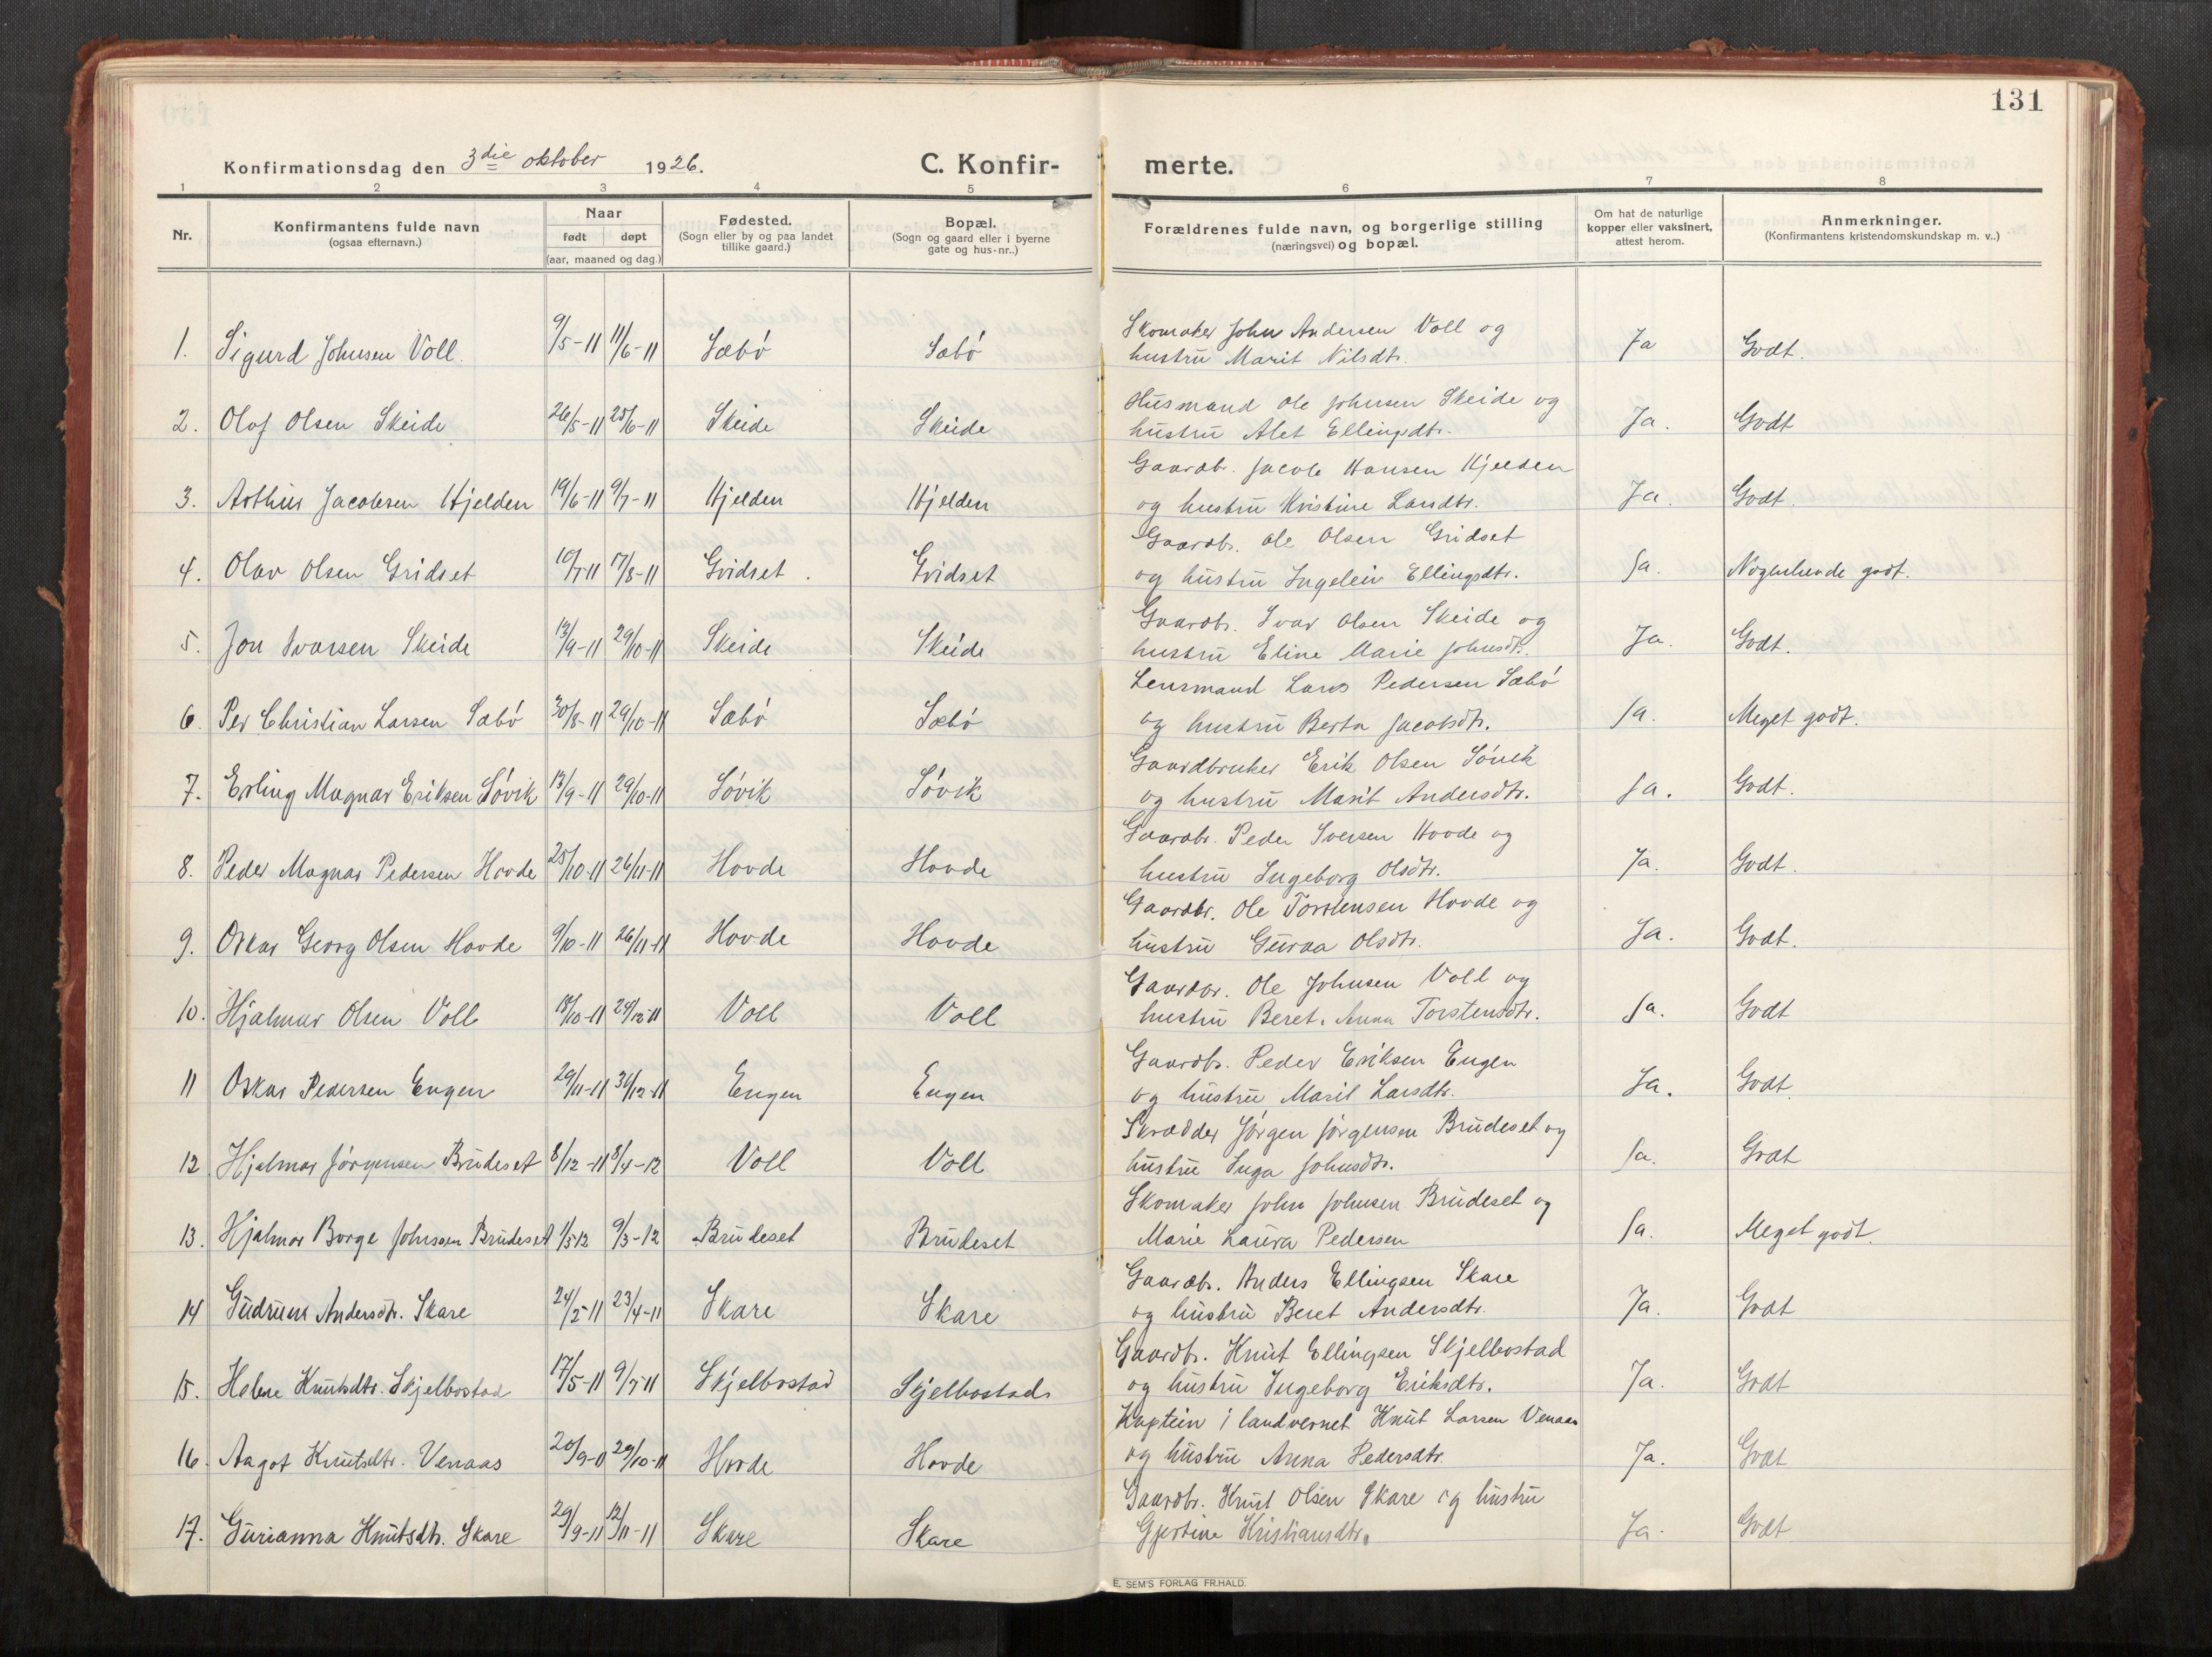 131
Konfirmationsdag den 3die oktober 1926. C. Konfirmerte.
1 2 3 4 5 6 7 8
Nr. Konfirmantens fulde navn (ogsaa efternavn.) Naar født døpt (aar, maaned og dag.) Fødested. (Sogn eller by og paa landet tillike gaard.) Bopæl. (Sogn og gaard eller i byerne gate og hus-nr..) Forældrenes fulde navn, og borgerlige stilling (næringsvei) og bopæl. Om hat de naturlige kopper eller vaksinert, attest herom. Anmerkninger. (Konfirmantens kristendomskundskap m. v..)
1. Sigurd Johnsen Voll. 9/5-11 11/6-11 Sæbö Sæbö Skomaker John Andersen Voll og
hustru Marit Nilsdtr. Ja Godt.
2. Olof Olsen Skeide 26/5-11 25/6-11 Skeide Skeide Husmand Ole Johnsen Skeide og
hustru Alet Ellingsdtr. Ja. Godt
3. Arthur Jacobsen Hjelden 19/6-11 9/7-11 Hjelden Hjelden Gaardb. Jacob Hansen Hjelden
og hustru Kristine Larsdtr. Ja. Godt.
4. Olav Olsen Gridset 10/7-11 17/8-11 Gridset. Gridset Gaardb. Ole Olsen Gridset
og hustru Ingeleiv Ellingsdtr. Ja. Nogenlunde godt.
5. Jon Ivarsen Skeide 13/9-11 29/10-11 Skeide Skeide Gaardb. Ivar Olsen Skeide og
hustru Eline Marie Johnsdtr. Ja. Godt.
6. Per Christian Larsen Sæbö 30/8-11 29/10-11 Sæbö Sæbö Lensmand Lars Pedersen Sæbö
og hustru Berta Jacobsdtr. Ja. Meget godt.
7. Erling Magnar Eriksen Sövik 13/9-11 29/10-11 Sövik Sövik Gaardbruker Erik Olsen Sövik
og hustru Marit Andersdtr. Ja. Godt.
8. Peder Magnar Pedersen Hovde 25/10-11 26/11-11 Hovde Hovde Gaardb. Peder Iversen Hovde og
hustru Ingeborg Olsdtr. Ja. Godt.
9. Oskar Georg Olsen Hovde 9/10-11 26/11-11 Hovde Hovde Gaardbr. Ole Torstensen Hovde og
hustru Guraa Olsdtr. Ja. Godt.
10. Hjalmar Olsen Voll 18/10-11 24/12-11 Voll Voll Gaardbr. Ole Johnsen Voll og
hustru Beret Anna Torstensdtr. Ja. Godt
11 Oskar Pedersen Engen 29/11-11 31/12-11 Engen Engen Gaardb. Peder Eriksen Engen
og hustru Marit Larsdtr. Ja. Godt.
12 Hjalmar Jörgensen Brudeset 8/12-11 8/4-12 Voll Voll Skrædder Jörgen Jörgensen Brudeset og
hustru Inga Johnsdtr. Ja. Godt
13. Hjalmar Borge Johnsen Brudeset 1/3-12 9/3-12 Brudeset Brudeset Skomaker John Johnsen Brudeset og
Marie Laura Pedersen Ja. Meget godt.
14 Gudrun Andersdtr. Skare 24/2-11 23/4-11 Skare Skare Gaardb. Anders Ellingsen Skare
og hustru Beret Andersdtr. Ja. Godt
15. Helene Knutsdtr. Skjelbostad 17/5-11 9/7-11 Skjelbostad Skjelbostad Gaardb. Knut Ellingsen Skjelbostad
og hustru Ingeborg Eriksdtr. Ja. Godt
16. Aagot Knutsdtr. Venaas 20/9-11 29/10-11 Hovde Hovde Kaptein i landvernet Knut Larsen Venaas
og hustru Anna Pedersdtr. Ja. Godt
17. Gurianna Knutsdtr. Skare 29/9-11 12/11-11 Skare Skare Gaardbr. Knut Olsen Skare og hustru
Gjertine Kristiansdtr. Ja. Godt
E. SEM'S FORLAG FR.HALD.